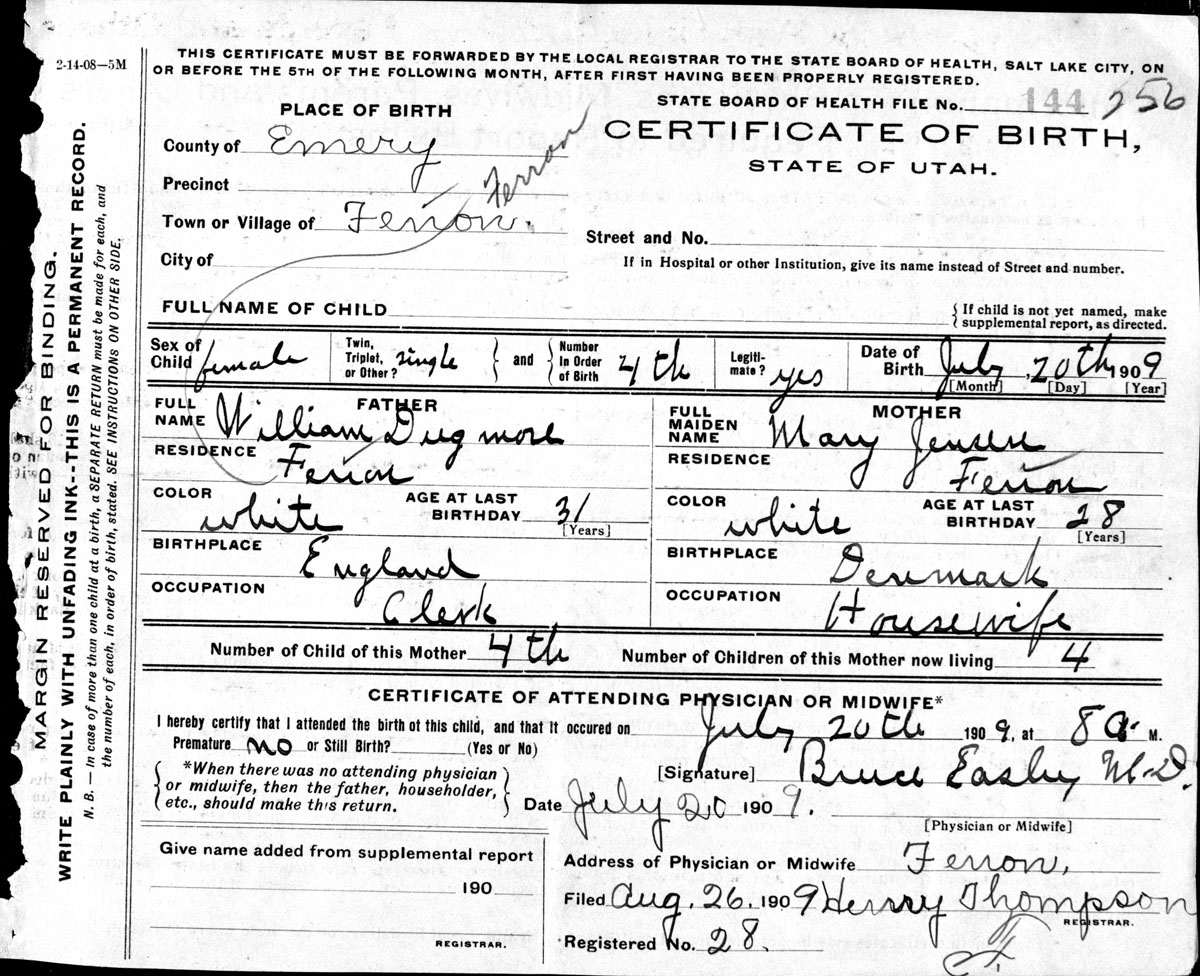 2-14-08—5M
THIS CERTIFICATE MUST BE FORWARDED BY THE LOCAL REGISTRAR TO THE STATE BOARD OF HEALTH, SALT LAKE CITY, ON
OR BEFORE THE 5TH OF THE FOLLOWING MONTH, AFTER FIRST HAVING BEEN PROPERLY REGISTERED.
MARGIN RESERVED FOR BINDING.
WRITE PLAINLY WITH UNFADING INK--THIS IS A PERMANENT RECORD.
N. B.— In case of more than one child at a birth, a SEPARATE RETURN must be made for each, and
the number of each, in order of birth, stated. SEE INSTRUCTIONS ON OTHER SIDE.
PLACE OF BIRTH
STATE BOARD OF HEALTH FILE No. 144 256
CERTIFICATE OF BIRTH,
STATE OF UTAH.
County of Emery
Precinct Ferron
Town or Village of Ferron.
Street and No.
City of
If in Hospital or other Institution, give its name instead of Street and number.
FULL NAME OF CHILD
{ If child is not yet named, make
{ supplemental report, as directed.
Sex of Child female
Twin, Triplet, or Other? single
and
Number In Order of Birth 4th
Legiti- mate? yes
Date of Birth July, 20th, 1909
[Month] [Day] [Year]
FATHER
FULL NAME William Dugmore
RESIDENCE Ferron
COLOR white
AGE AT LAST BIRTHDAY 31
[Years]
BIRTHPLACE England
OCCUPATION Clerk
MOTHER
FULL MAIDEN NAME Mary Jensen
RESIDENCE Ferron
COLOR white
AGE AT LAST BIRTHDAY 28
[Years]
BIRTHPLACE Denmark
OCCUPATION Housewife
Number of Child of this Mother 4th
Number of Children of this Mother now living 4
CERTIFICATE OF ATTENDING PHYSICIAN OR MIDWIFE*
I hereby certify that I attended the birth of this child, and that it occured on July 20th 1909, at 8 a. M.
Premature no or Still Birth? (Yes or No)
*When there was no attending physician
or midwife, then the father, householder,
etc., should make this return.
[Signature] Bruce Easley M.D.
Date July 20 1909.
[Physician or Midwife]
Give name added from supplemental report
190
REGISTRAR.
Address of Physician or Midwife Ferron,
Filed Aug. 26, 1909 Henry Thompson
REGISTRAR.
Registered No. 28.